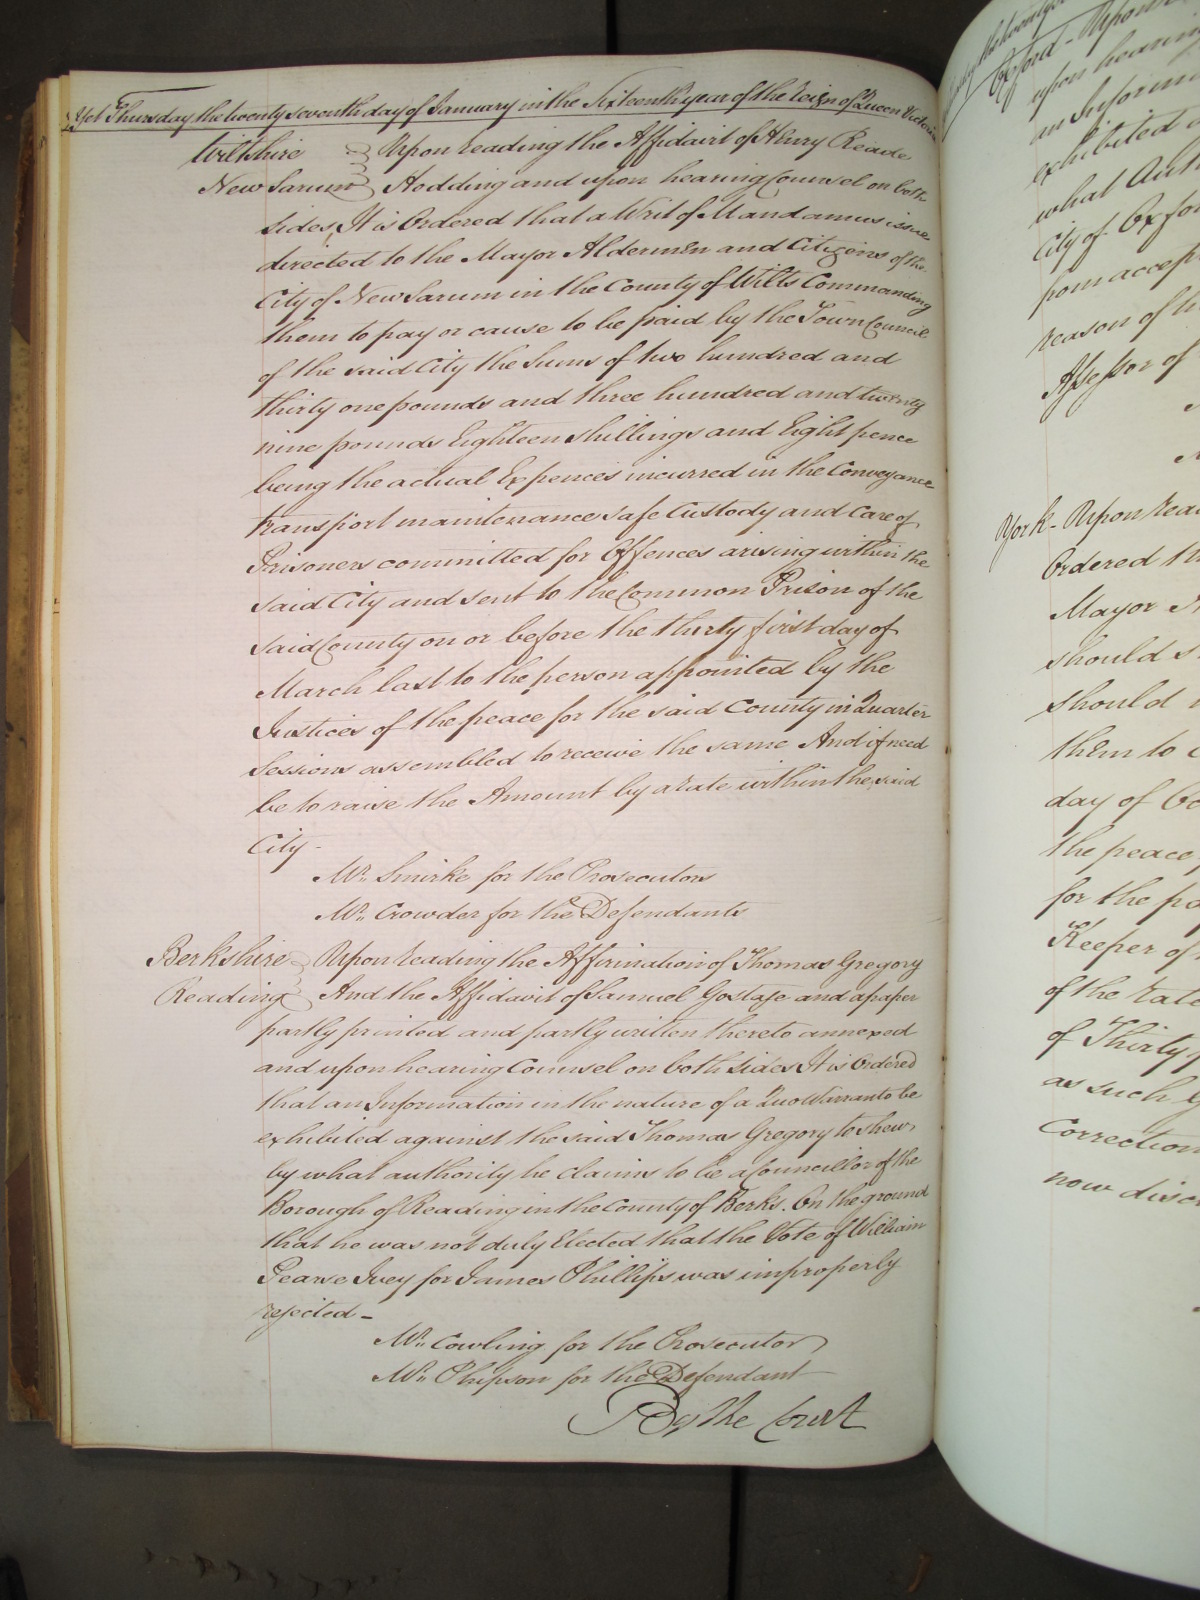 Yet Thursday the twenty seventh day of January in the Sixteenth year of the reign of Queen Victoria
Wiltshire Upon reading the Affidavit of Henry Reade
New Sarum Hodding and upon hearing Counsel on both
sides, It is Ordered that a Writ of Mandamus issue
directed to the Mayor Aldermen and Citizens of the
City of New Sarum in the County of Wilts Commanding
them to pay or cause to be paid by the Town Council
of the said City the Sums of two hundred and
thirty one pounds and three hundred and twenty
nine pounds Eighteen shillings and Eight pence
being the actual Expences incurred in the Conveyance
transport maintenance safe Custody and Care of
Prisoners committed for Offences arising within the
said City and sent to the Common Prison of the
said County on or before the thirty first day of
March last to the person appointed by the
Justices of the peace for the said County in Quarter
Sessions assembled to receive the same And if need
be to raise the Amount by a rate within the said
City -
Mr. Smirke for the Prosecutors
Mr. Crowder for the Defendants
Berkshire Upon reading the Affirmation of Thomas Gregory
Reading And the Affidavit of Samuel Gostage and a paper
partly printed and partly written thereto annexed
and upon hearing Counsel on both sides It is Ordered
that an Information in the nature of a Quo Warranto be
exhibited against the said Thomas Gregory to shew
by what authority he claims to be a Councillor of the
Borough of Reading in the County of Berks. On the ground
that he was not duly Elected that the Vote of William
Pearse Ivey for James Phillips was improperly
rejected -
Mr. Cowling for the Prosecutor
Mr. Phipson for the Defendant
By the Court
Oxford - Upon
upon hearing
an Inform
exhibited
what Auth
City of Oxfor
from accep
reason of h
Assessor of
York - Upon read
Ordered th
Mayor
should s
should
them to
day of
the peace
for the pa
Keeper of
of the rate
of Thirty
as such
Correction
now disc